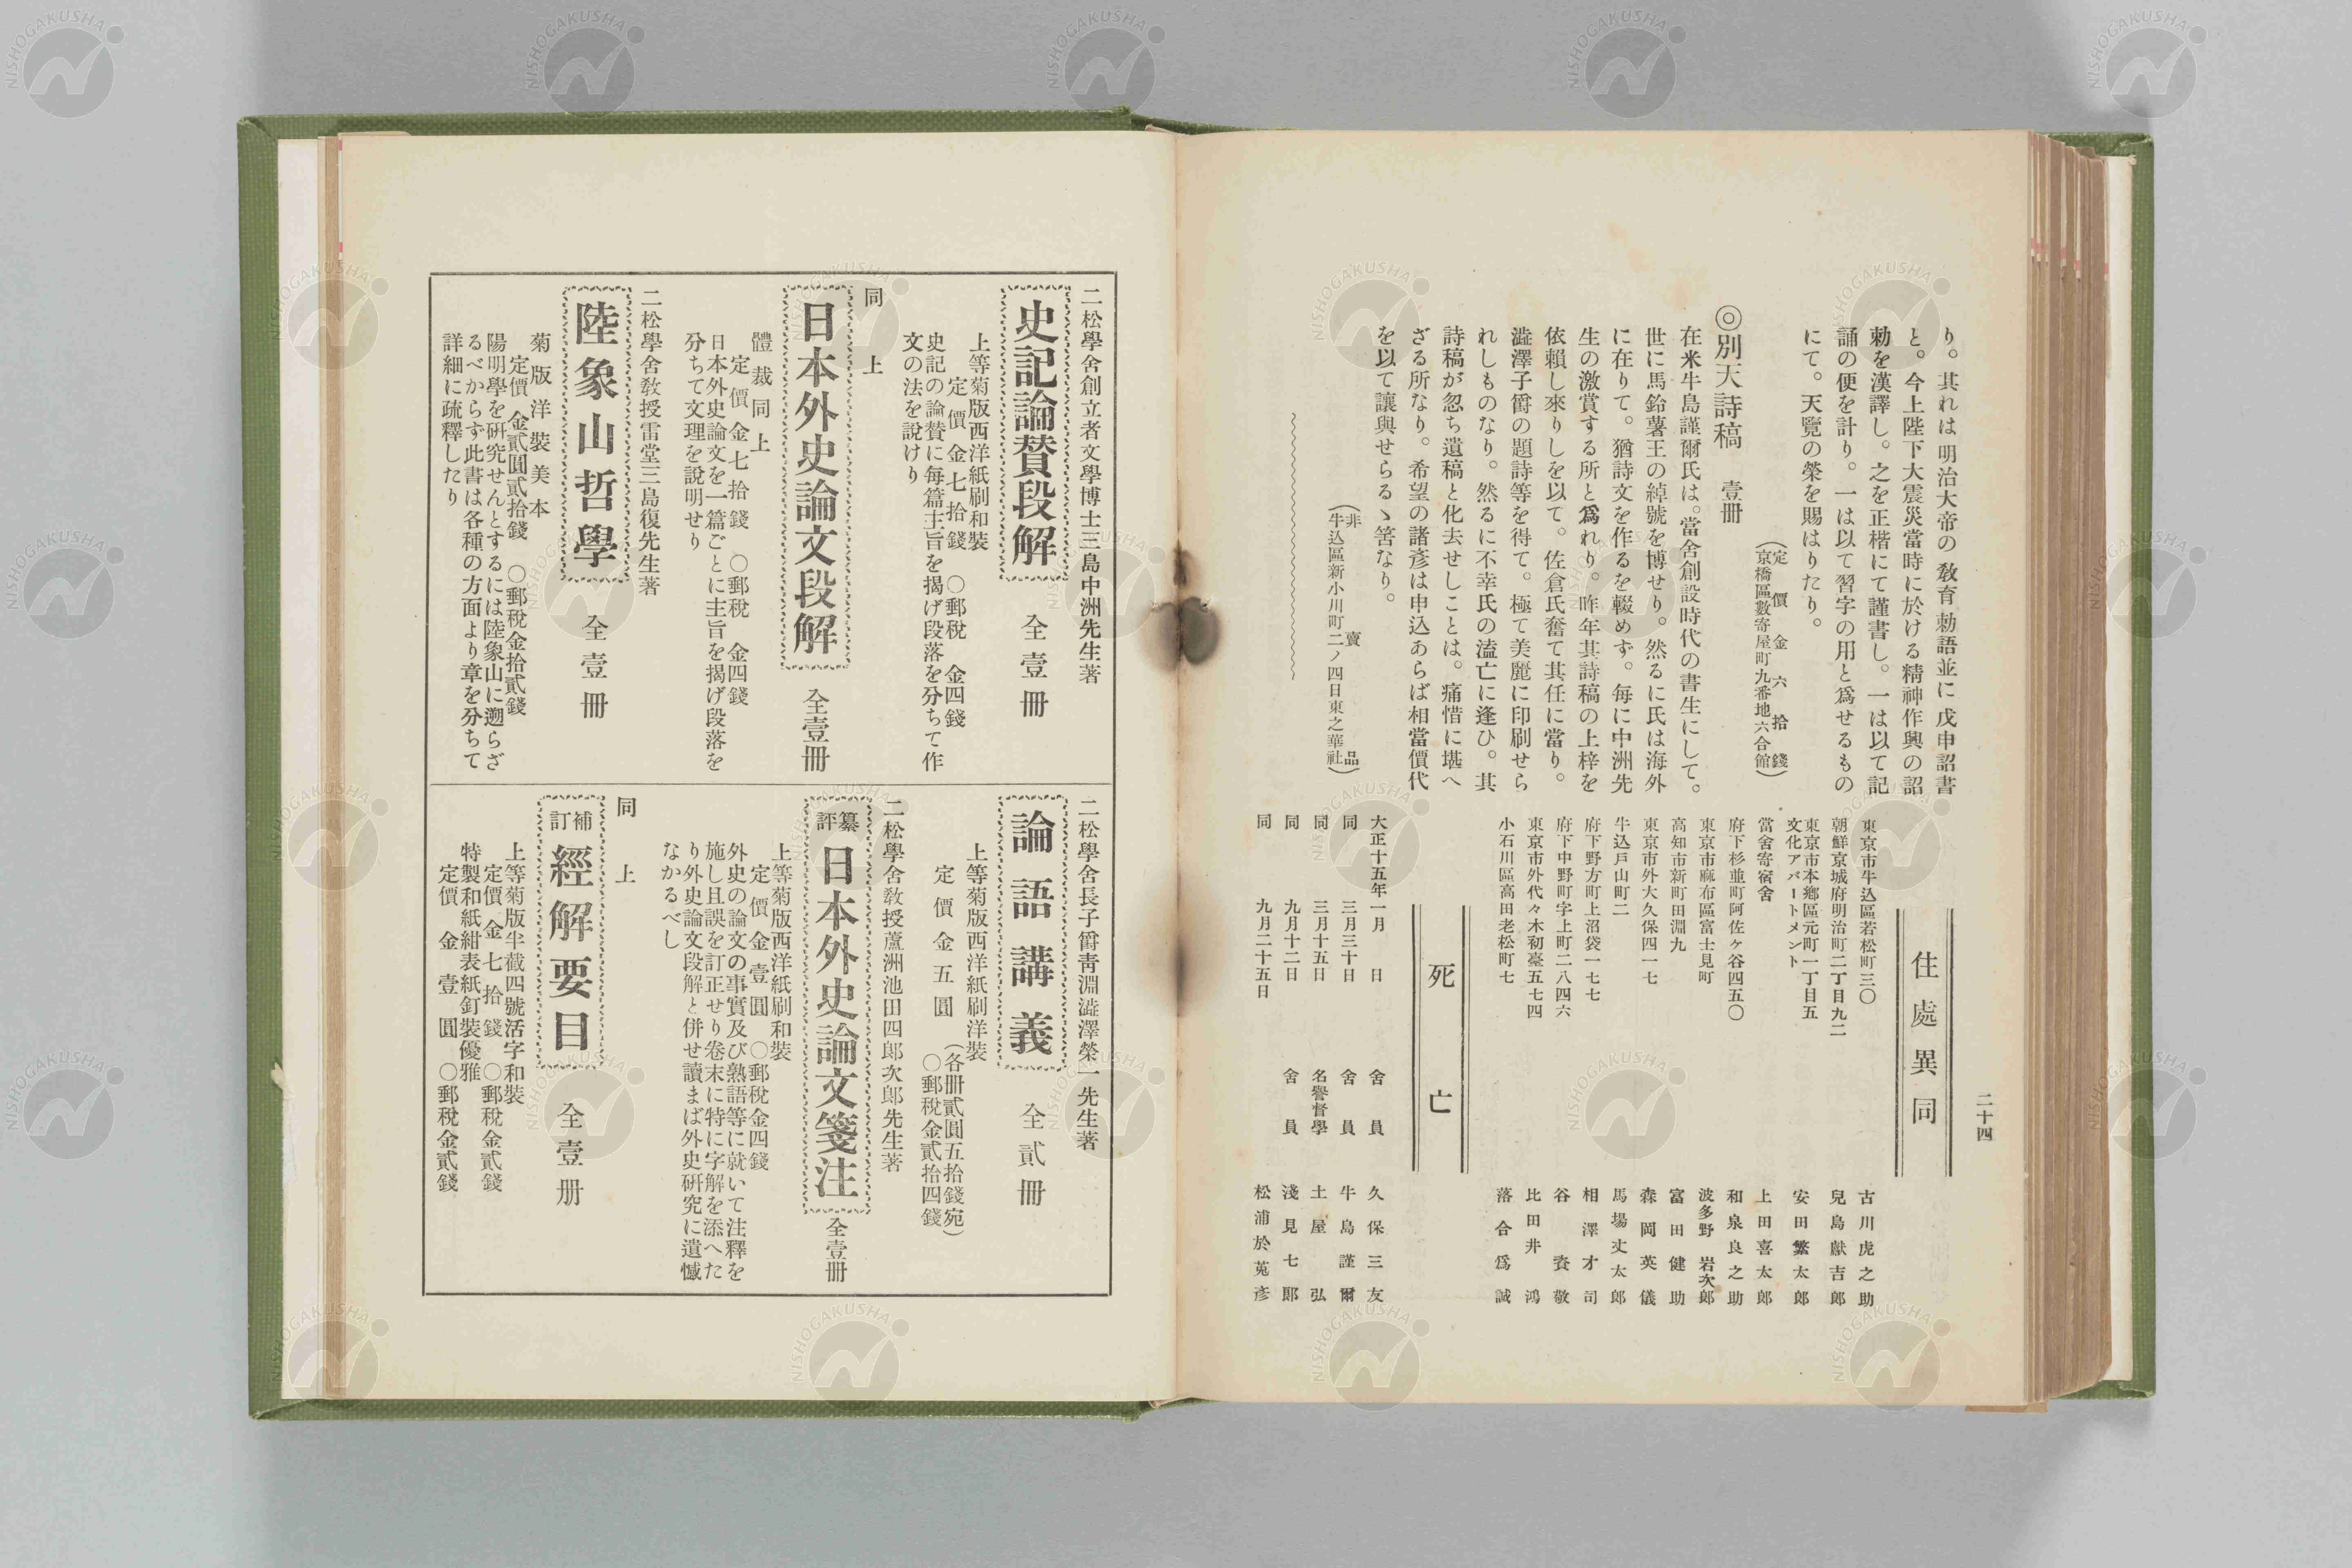 二十四
り。其れは明治大帝の敎育勅語並に戊申詔書
と。今上陛下大震災當時に於ける精神作興の詔
勅を漢譯し。之を正楷にて謹書し。一は以て記
誦の便を計り。一は以て習字の用と爲せるもの
にて。天覽の榮を賜はりたり。
(定價金六拾錢
京橋區數寄屋町九番地六合館)
◎別天詩稿 壹册
在米牛島謹爾氏は。當舍創設時代の書生にして。
世に馬鈴薯王の綽號を博せり。然るに氏は海外
に在りて。猶詩文を作るを輟めず。每に中洲先
生の激賞する所と爲れり。昨年其詩稿の上梓を
依賴し來りしを以て。佐倉氏奮て其任に當り。
澁澤子爵の題詩等を得て。極て美麗に印刷せら
れしものなり。然るに不幸氏の溘亡に逢ひ。其
詩稿が忽ち遺稿と化去せしことは。痛惜に堪へ
ざる所なり。希望の諸彥は申込あらば相當價代
を以て讓與せらるゝ筈なり。
(非賣品
牛込區新小川町二ノ四日東之華社)
住處異同
東京市牛込區若松町三〇 古川虎之助
朝鮮京城府明治町二丁目九二 兒島獻吉郎
東京市本鄕區元町一丁目五
文化アパートメント 安田繁太郎
當舍寄宿舍 上田喜太郎
府下杉並町阿佐ケ谷四五〇 和泉良之助
東京市麻布區富士見町 波多野岩次郎
高知市新町田淵九 富田健助
東京市外大久保四一七 森岡英儀
牛込戸山町二 馬場丈太郎
府下野方町上沼袋一七七 相澤才司
府下中野町字上町二八四六 谷資敬
東京市外代々木初臺五七四 比田井鴻
小石川區高田老松町七 落合爲誠
死亡
大正十五年一月 日 舍員 久保三友
同 三月三十日 舍員 牛島謹爾
同 三月十五日 名譽督學 土屋弘
同 九月十二日 舍員 淺見七郎
同 九月二十五日 松浦於菟彥
二松學舍創立者文學博士三島中洲先生著
史記論贊段解 全壹册
上等菊版西洋紙刷和裝
定價金七拾錢 〇郵稅金四錢
史記の論贊に每篇主旨を揭げ段落を分ちて作
文の法を說けり
同上
日本外史論文段解 全壹册
體裁同上
定價金七拾錢 〇郵稅金四錢
日本外史論文を一篇ごとに主旨を揭げ段落を
分ちて文理を說明せり
二松學舍敎授雷堂三島復先生著
陸象山哲學 全壹册
菊版洋裝美本
定價金貳圓貳拾錢 〇郵稅金拾貳錢
陽明學を硏究せんとするには陸象山に遡らざ
るべからず此書は各種の方面より章を分ちて
詳細に疏釋したり
二松學舍長子爵靑淵澁澤榮一先生著
論語講義 全貳册
上等菊版西洋紙刷洋裝
定價金五圓 (各册貳圓五拾錢宛)
〇郵稅金貳拾四錢
二松學舍敎授蘆洲池田四郎次郎先生著
纂評 日本外史論文箋注 全壹册
上等菊版西洋紙刷和裝
定價金壹圓 〇郵稅金四錢
外史の論文の事實及び熟語等に就いて注釋を
施し且誤を訂正せり卷末に特に字解を添へた
り外史論文段解と併せ讀まば外史硏究に遺憾
なかるべし
同上
補訂 經解要目 全壹册
上等菊版半截四號活字和裝
定價金七拾錢 〇郵稅金貳錢
特製和紙紺表紙釘裝優雅
定價金壹圓 〇郵稅金貳錢
NISHOGAKUSHA